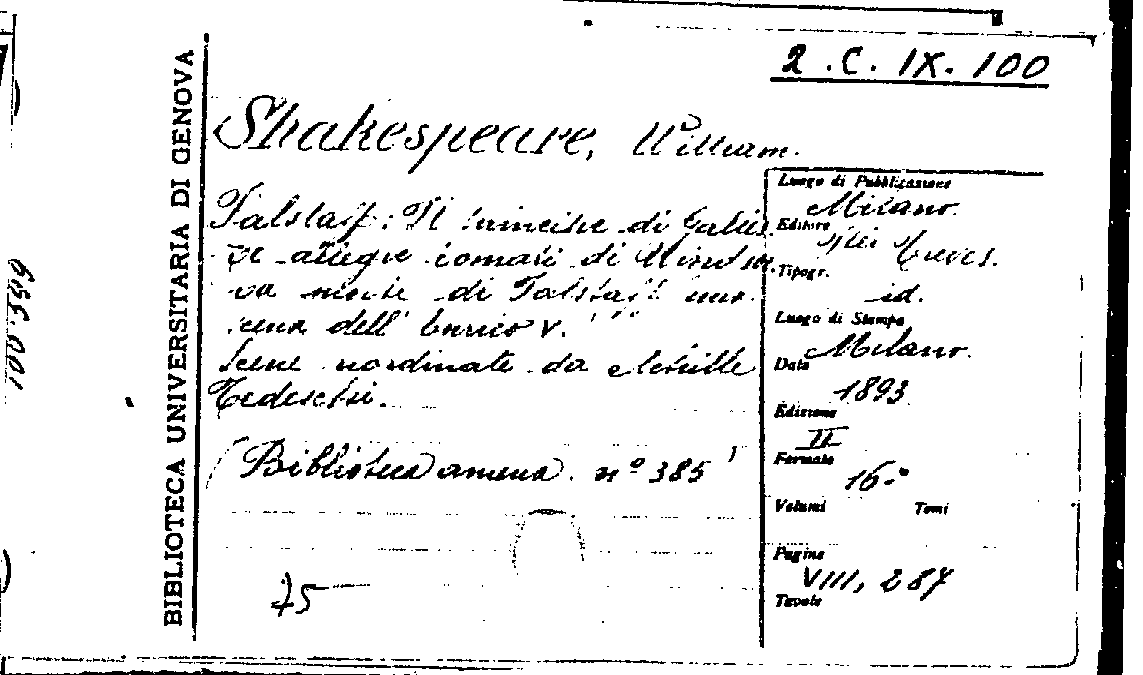 2.C.IX.100
BIBLIOTECA UNIVERSITARIA DI GENOVA
Shakespeare, William.
Falstaff: Il principe di Galles
Le allegre comari di Windsor.
La morte di Falstaff una
scena dell' Enrico V.
Scene riordinate da Achille
Tedeschi.
(Biblioteca amena. nº 385)
75
Luogo di Pubblicazione
Milano.
Editore
F.lli Treves.
Tipogr.
id.
Luogo di Stampa
Milano.
Data
1893
Edizione
II
Formato
16.º
Volumi Tomi
Pagine
VIII, 287
Tavole